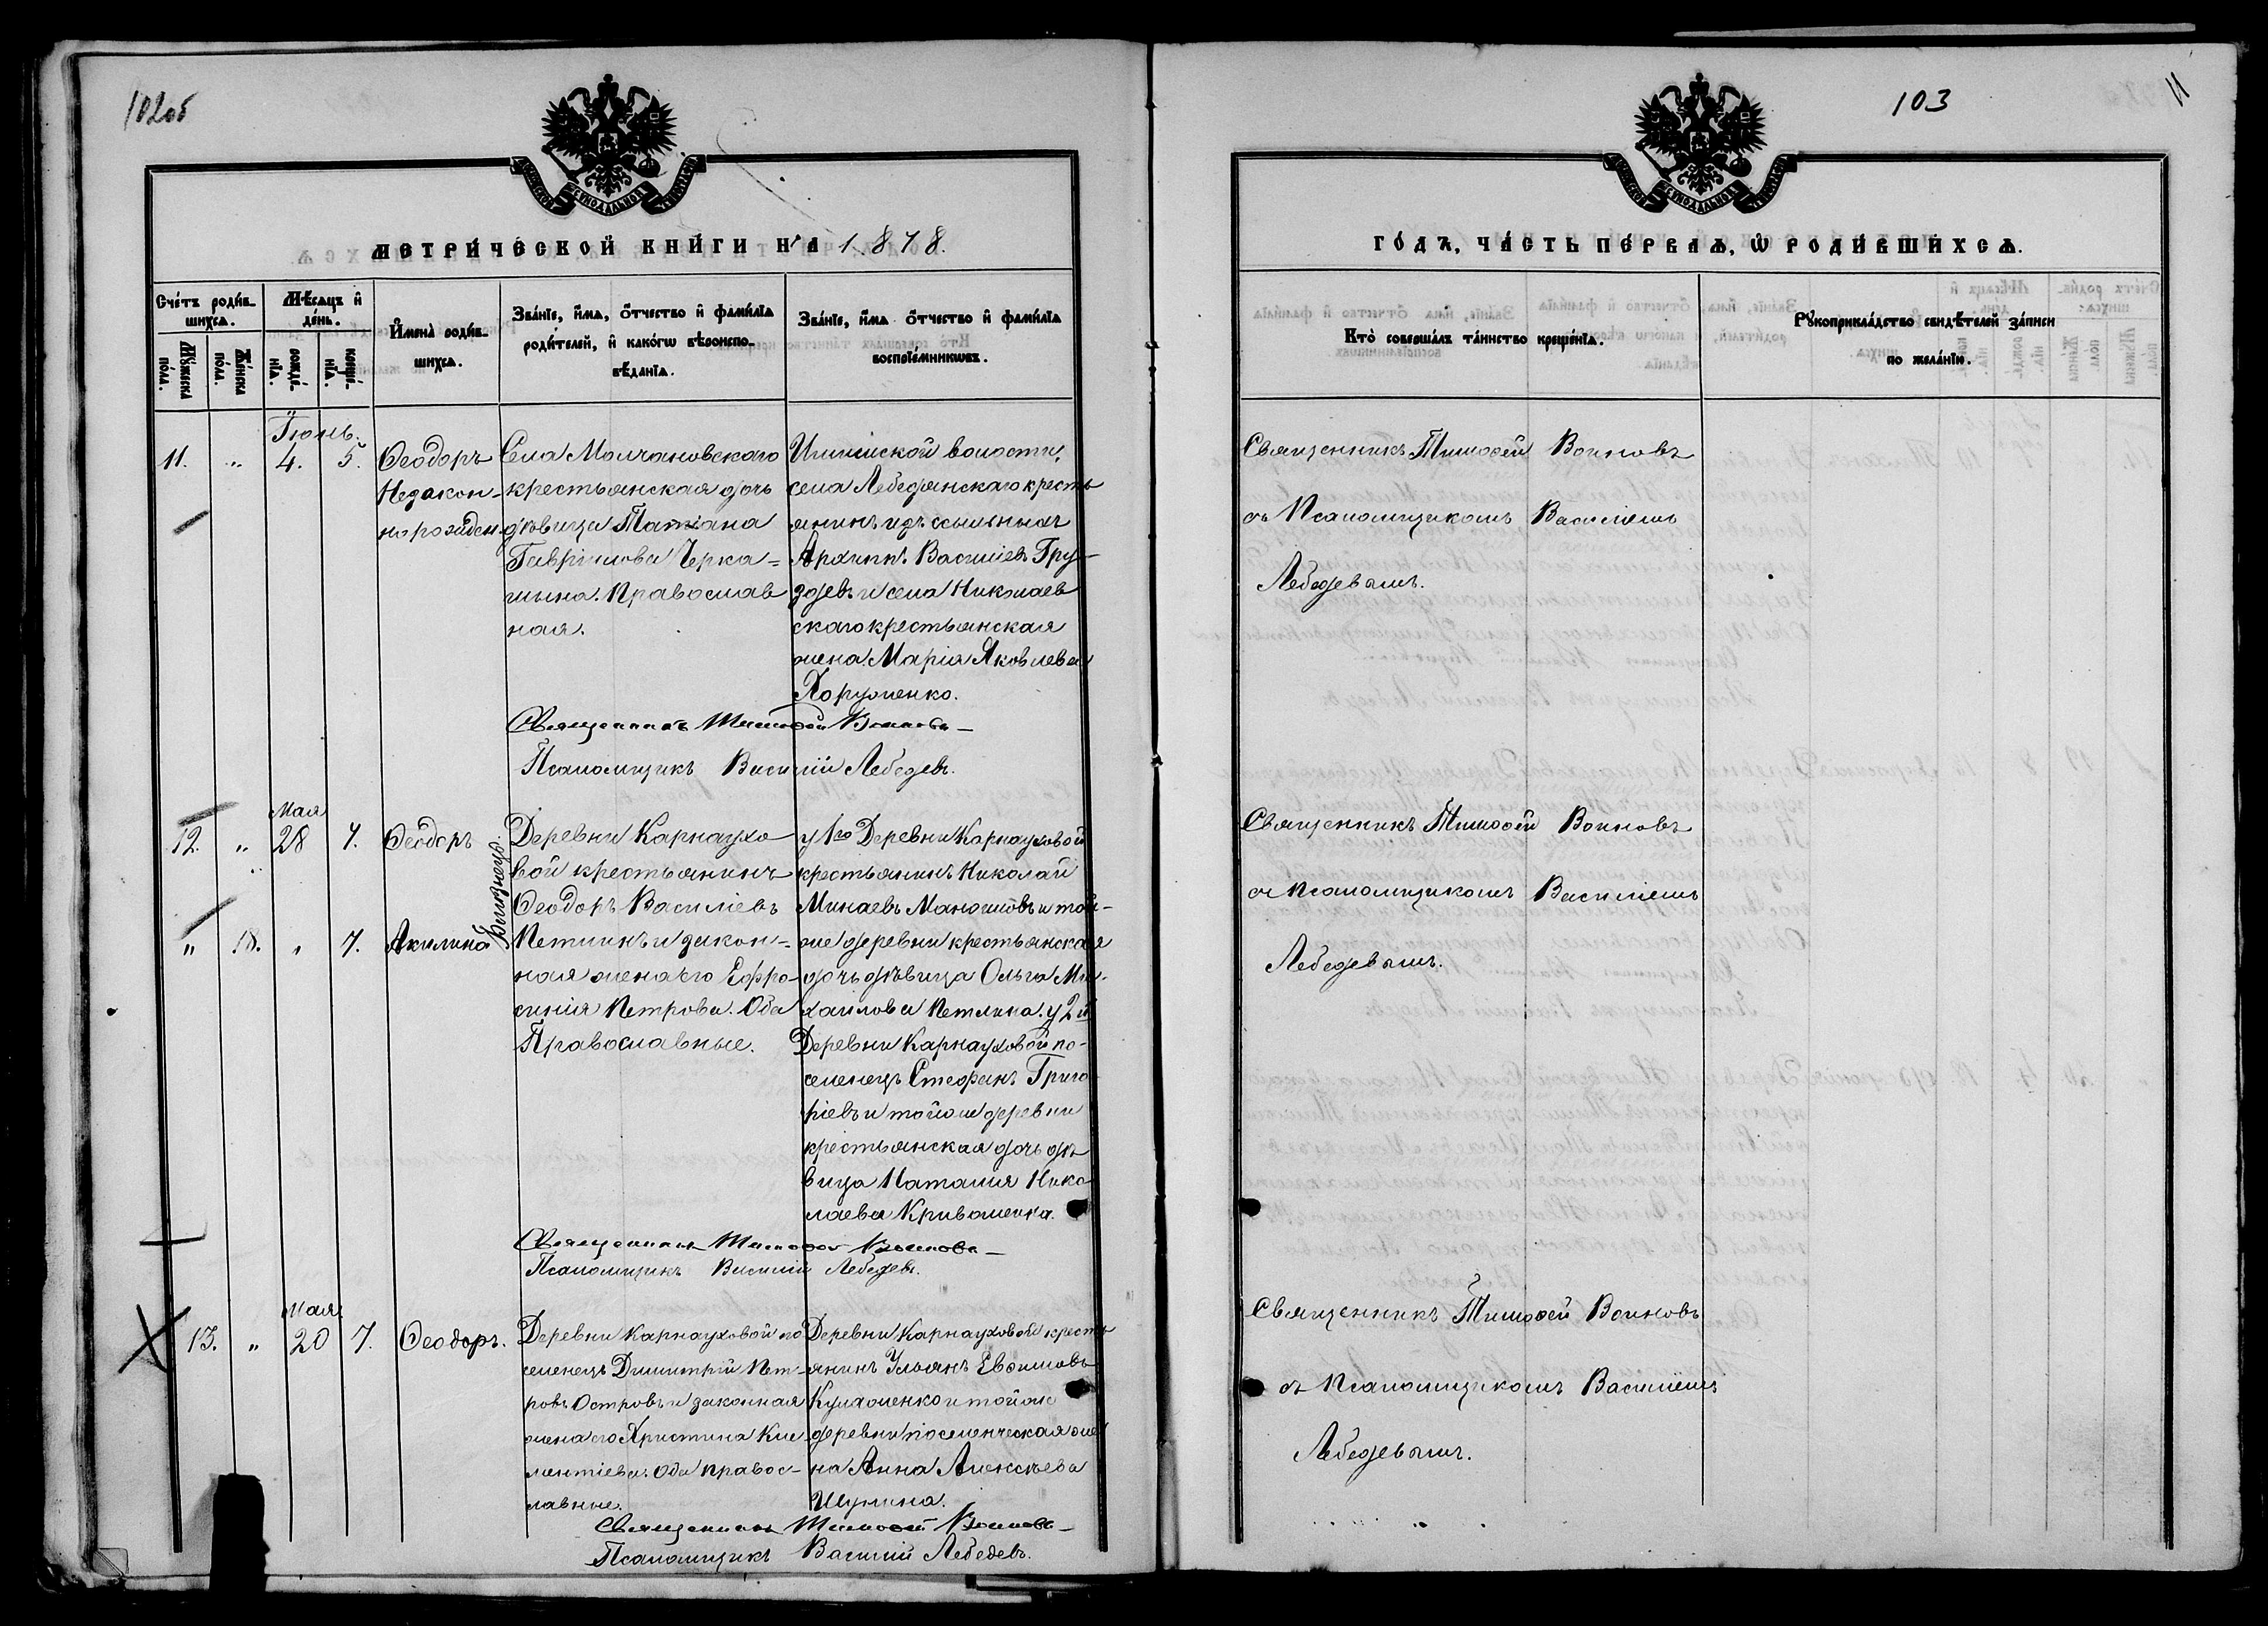 102об
МЕТРИ́ЧЕСКОЙ КНИ́ГИ НА 1878.
Сче́тъ роди́в-
шихсѧ.
Мѣ́сѧцъ и҆
де́нь.
Мꙋ́жеска
по́ла.
Же́нска
по́ла.
рожде́-
нїѧ.
креще́-
нїѧ.
И҆мена̀ роди́в-
шихсѧ.
Зва́нїе, и҆́мѧ, ѻ҆́тчество и҆ фами́лїѧ
роди́телей, и҆ како́гѡ вѣроиспо-
вѣ́данїѧ.
Зва́нїе, и҆́мѧ ѻ҆́тчество и҆ фами́лїѧ
воспрїе́мникѡвъ.
Іюнь.
11. „ 4. 5.
Ѳеодоръ
Незакон-
норожден.
Села Молчановскаго
крестьянская дочь
дѣвица Татіана
Гавріилова Черка-
шина. Православ
ная.
волости,
села Лебедянскаго кресть
янинъ изъ ссыльныхъ
Архипъ Василіевъ Гру-
здевъ и села Николаев
скаго крестьянская
жена Марія Яковлева
Хорженко.
Священникъ Тимофей Воиновъ
Псаломщикъ Василій Лебедевъ.
Мая
12. „ 28 7. Ѳеодоръ
„ 18. „ 7. Акилина
Близнецы
Деревни Карнаухо
вой крестьянинъ
Ѳеодоръ Василіевъ
Петлинъ и закон-
ная жена его Ефро-
синія Петрова. Оба
Православные.
у 1го Деревни Карнауховой
крестьянинъ Николай
Минаевъ и той-
же деревни крестьянская
дочь дѣвица Ольга Ми-
хаилова Петлина. у 2й
Деревни Карнауховой по-
селенецъ Стефанъ Григо
ріевъ и той же деревни
крестьянская дочь дѣ
вица Наталия Нико
лаева
Священникъ Тимофей Воиновъ
Псаломщикъ Василій Лебедевъ.
Мая
13. „ 20 7. Ѳеодоръ.
Деревни Карнауховой по
селенецъ Димитрій Пет-
ровъ Островъ и законная
жена его Христина Кли-
ментіева. Оба правос-
лавные.
Деревни Карнауховой кресть
янинъ Ульянъ Евѳимовъ
и той же
деревни поселенческая же
на Анна Алексѣева
Шунина.
Священникъ Тимофей Воиновъ
Псаломщикъ Василій Лебедевъ.
103
11
ГО́ДЪ, ЧА́СТЬ ПЕ́РВАѦ, Ѡ҆ РОДИ́ВШИХСѦ.
Кто̀ соверша́лъ та́инство креще́нїѧ.
Рꙋкоприкла́дство свидѣ́телей за́писи
по жела́нїю.
Священникъ Тимоѳей Воиновъ
съ Псаломщикомъ Василіемъ
Лебедевымъ.
Священникъ Тимоѳей Воиновъ
съ Псаломщикомъ Василіемъ
Лебедевымъ.
Священникъ Тимоѳей Воиновъ
съ Псаломщикомъ Василіемъ
Лебедевымъ.